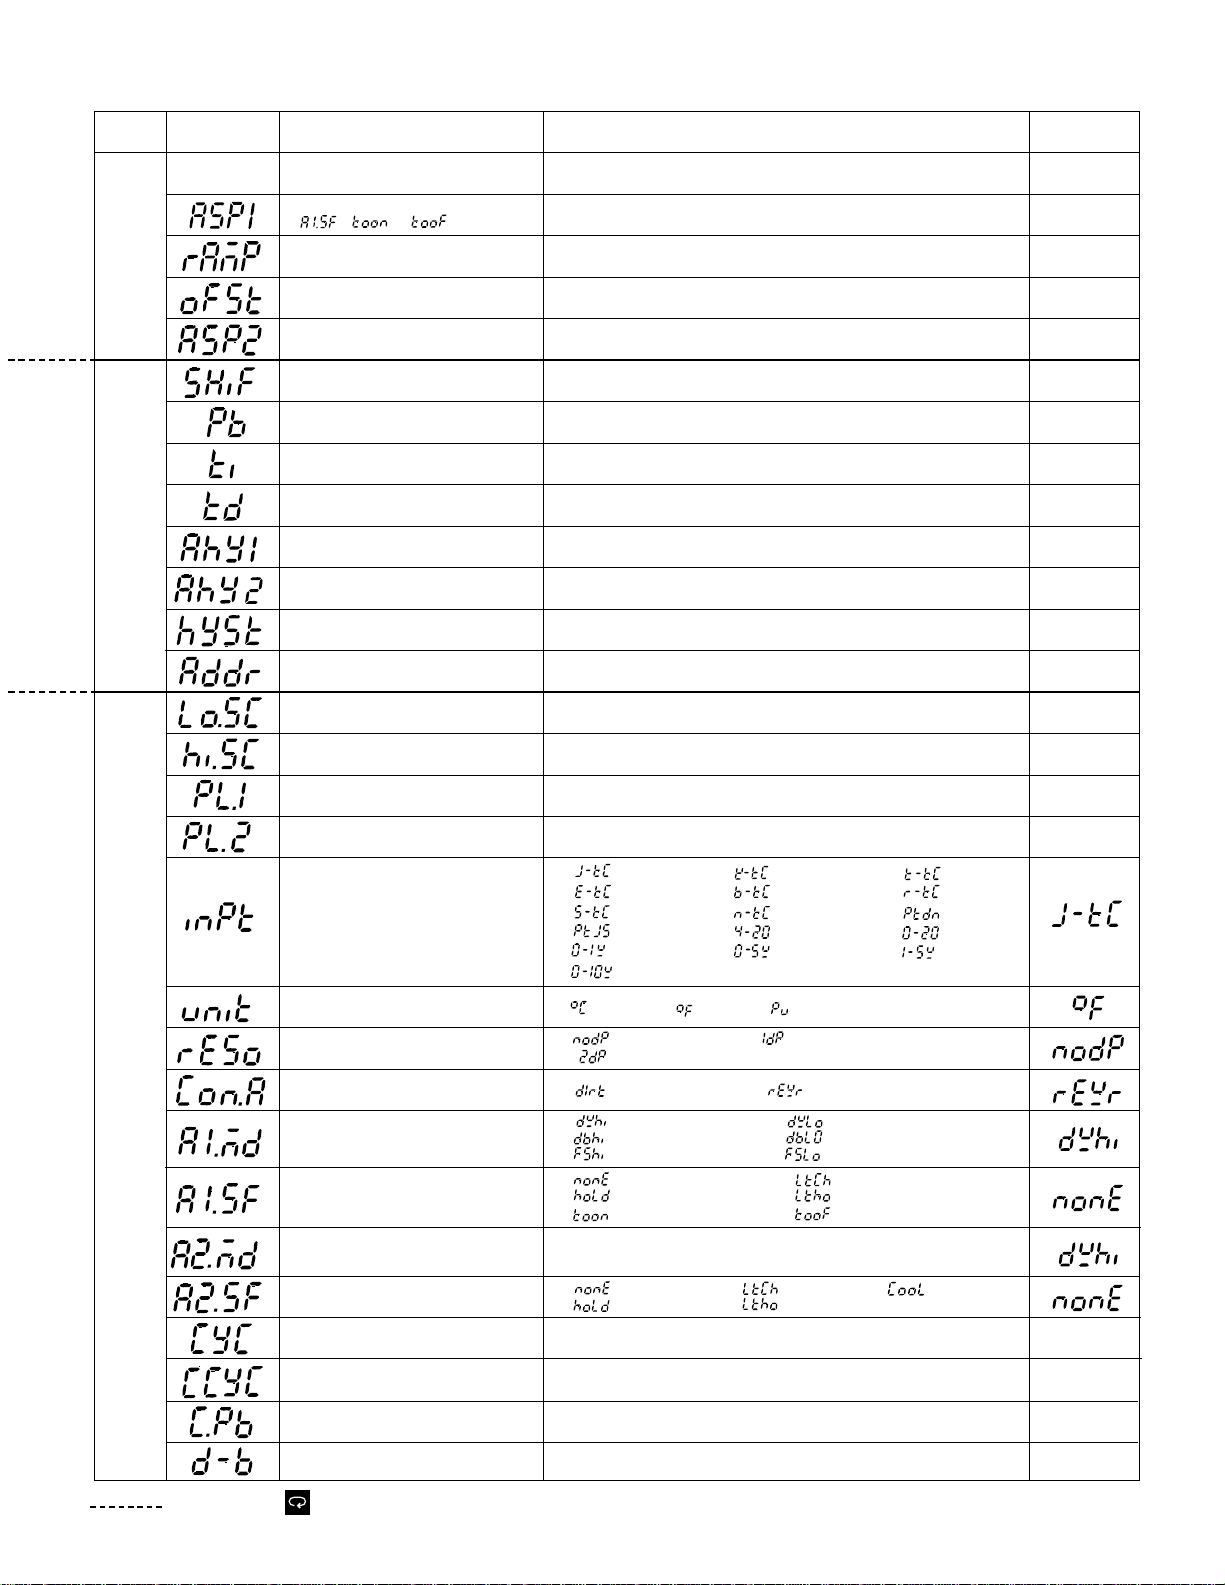 ASP1 A1.SF toon tooF
rAmP
oFSt
ASP2
SHiF
Pb
ti
td
AhY1
AhY2
hYSt
Addr
Lo.SC
hi.SC
PL.1
PL.2
J-tC K-tC t-tC
E-tC b-tC r-tC
inPt S-tC n-tC Ptdn J-tC
PtJS 4-20 0-20
0-1V 0-5V 1-5V
0-10V
unit °C °F Pu °F
rESo nodP 1dP nodP
2dP
Con.A dIrt rEVr rEVr
dVhi dVLo
A1.md dbhi dbLO dVhi
FShi FSLo
nonE LtCh
A1.SF hoLd Ltho nonE
toon tooF
A2.md dVhi
A2.SF nonE LtCh CooL nonE
hoLd Ltho
CYC
CCYC
C.Pb
d-b